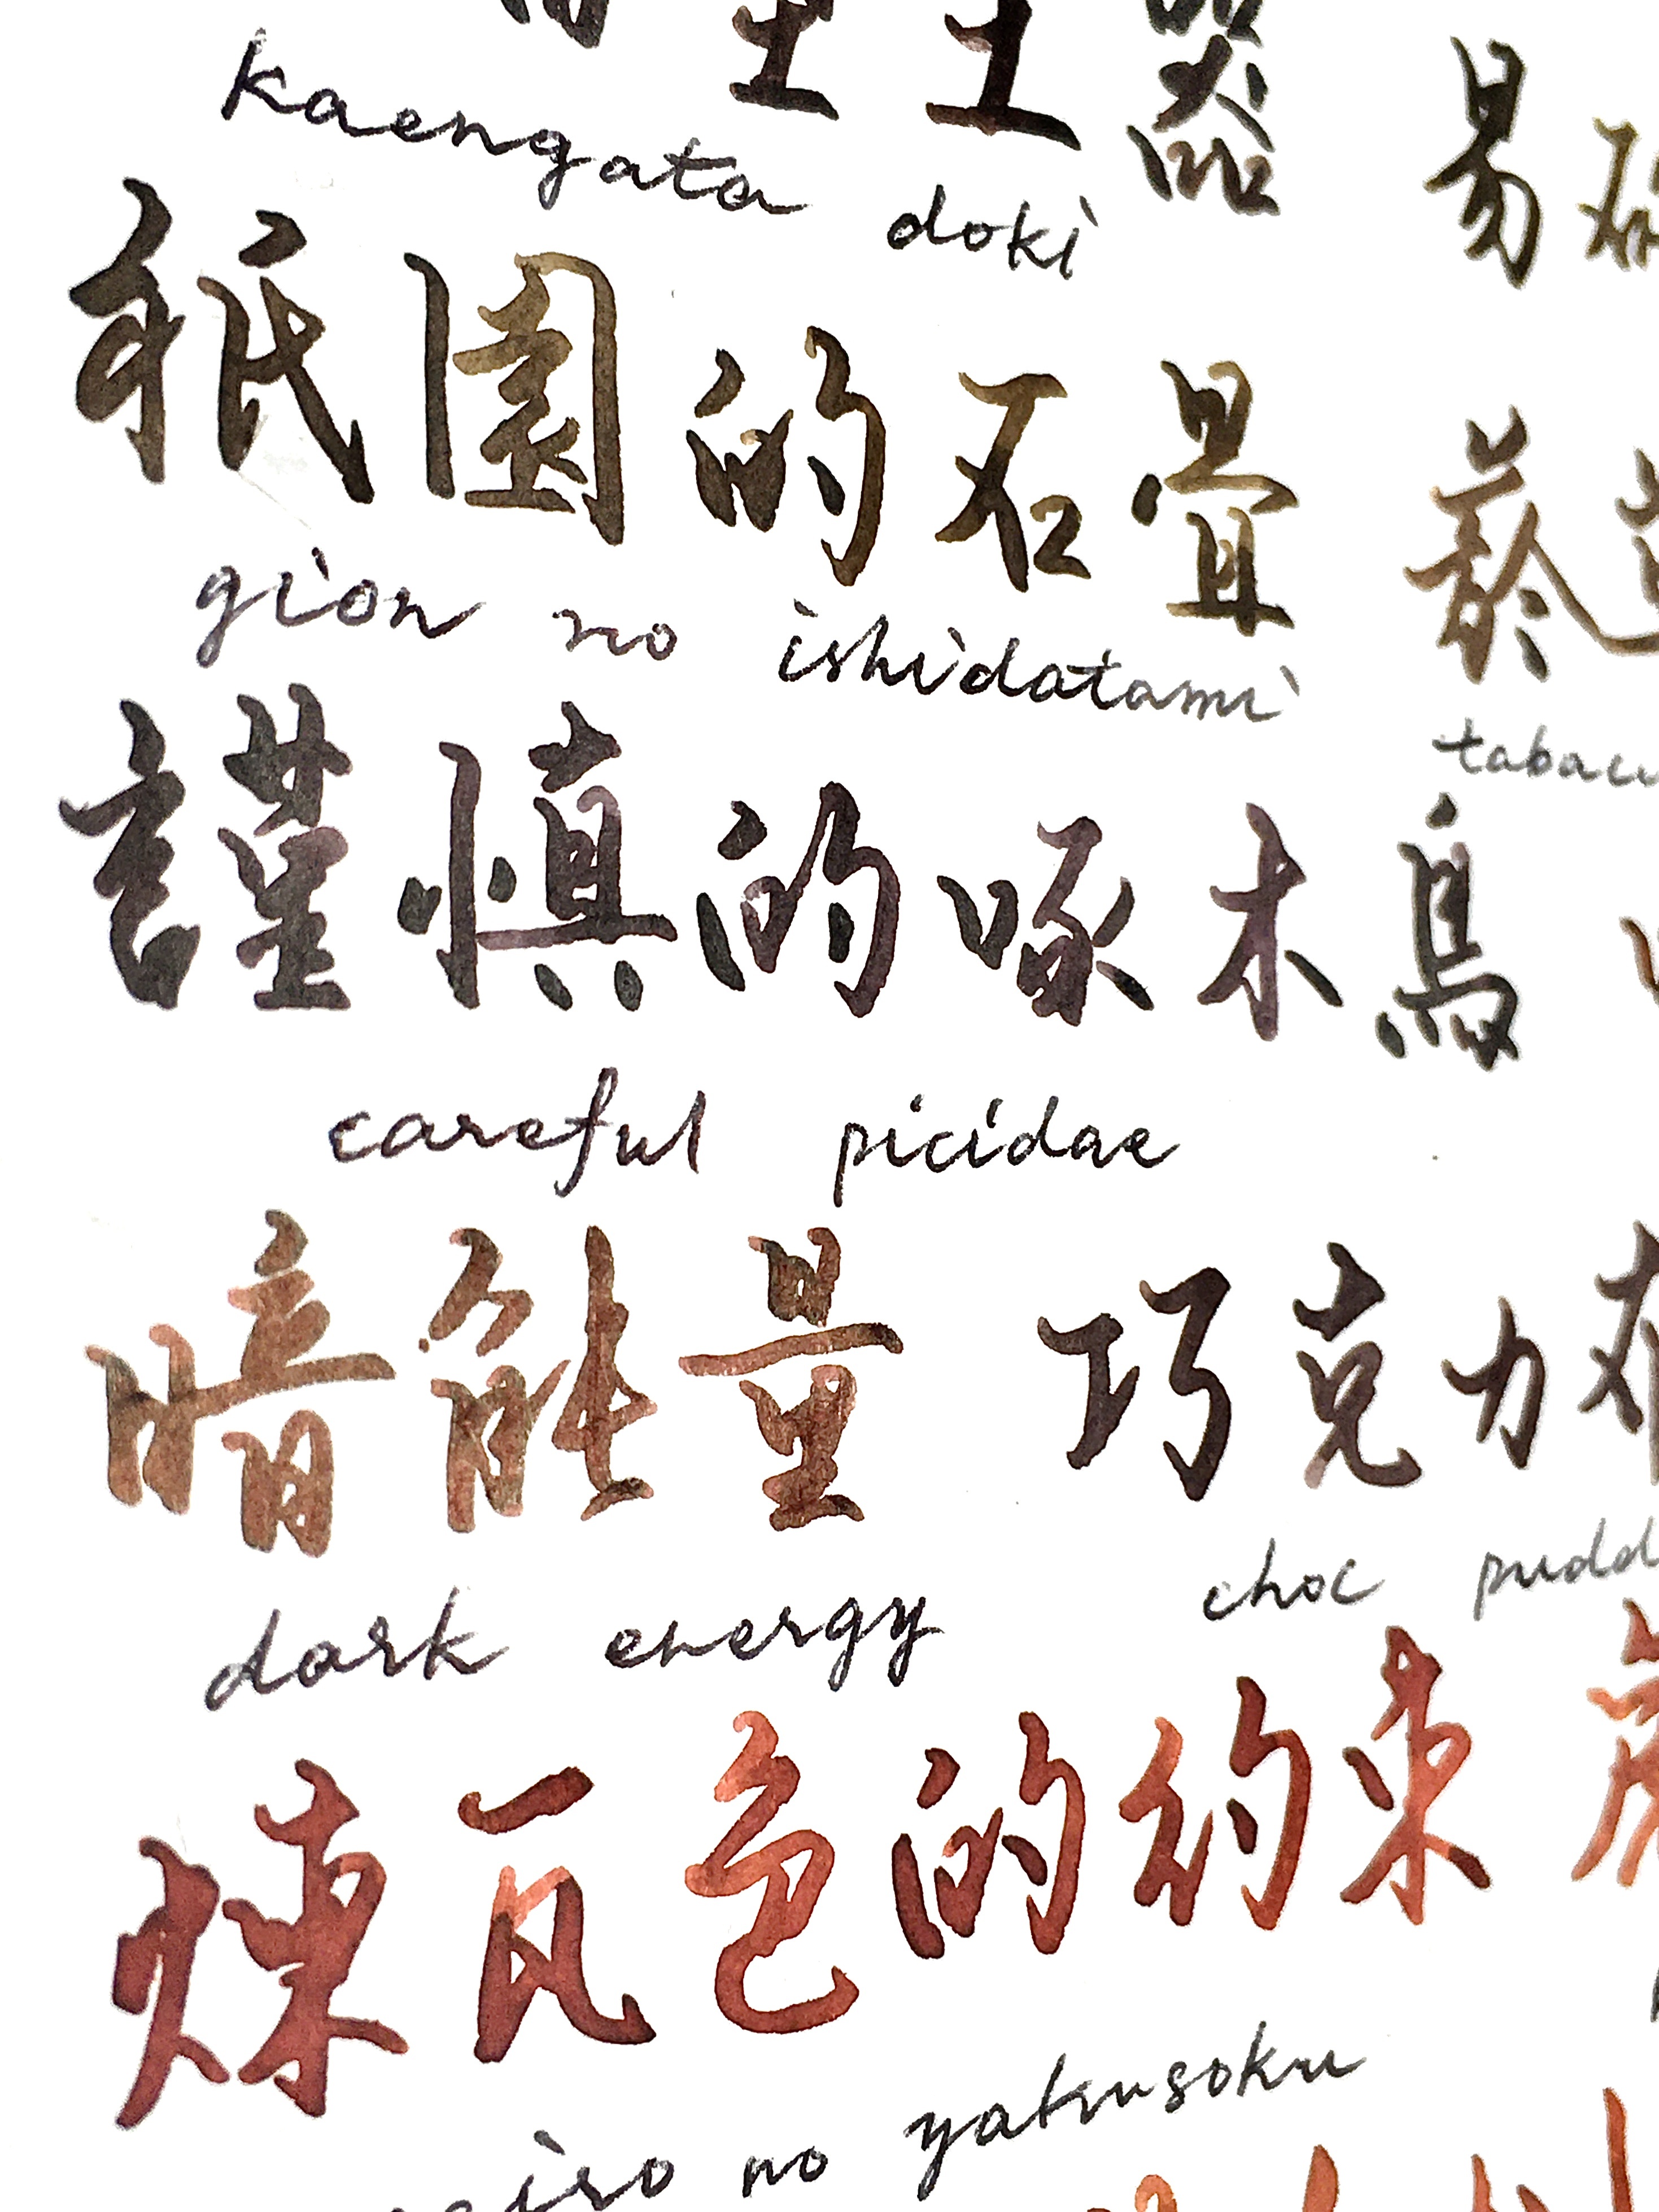 土器
kaengata doki
祇園的石畳
gion no ishidatami
謹慎的啄木鳥
careful picidae
暗能量 巧克力布
dark energy choc pudd
煉瓦色的約束
iro no yakusoku